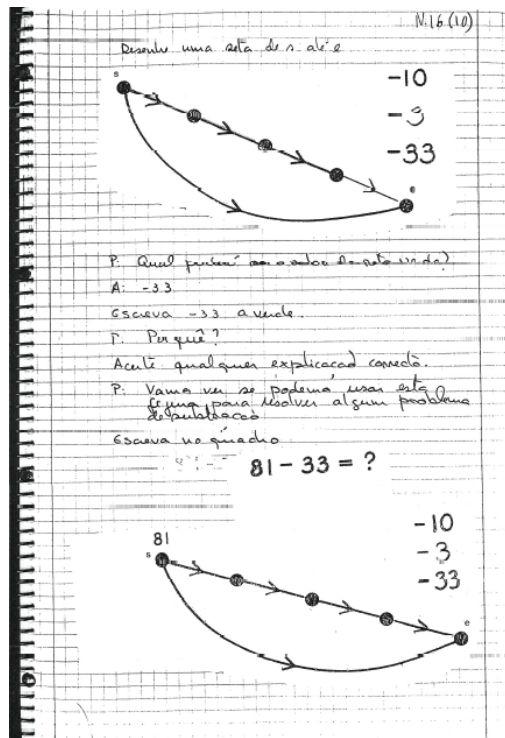 N.16 (10)
Desenhe uma seta de s até e
s
-10
-3
-33
e
P: Qual poderá ser o valor da seta verde?
A: -33
Escreva -33 a verde.
P: Por quê?
Aceite qualquer explicação correcta.
P: Vamos ver se podemos usar esta
figura para resolver algum problema
de subtracção
Escreva no quadro
81 - 33 = ?
81
s
-10
-3
-33
e